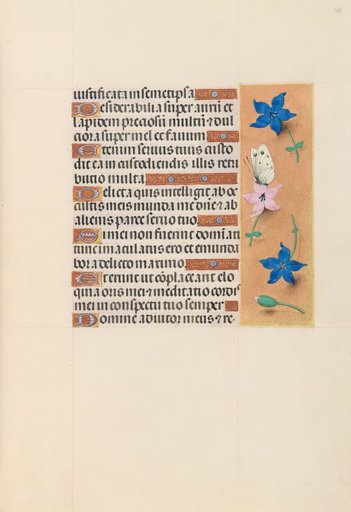 iustificata in semetipsa
Desiderabilia super aurū et
lapidem preciosū multū: et dul
ciora super mel et fauum
Etenim seruus tuus custo
dit ea in custodiendis illis retri
butio multa
Delicta quis intelligit ab oc
cultis meis munda me dn̄e: et ab
alienis parce seruo tuo
Si mei non fuerint dominati
tunc immaculatus ero et emunda
bor a delicto maximo
Et erunt ut cōplaceant elo
quia oris mei: et meditatio cordis
mei in conspectu tuo semper
Domine adiutor meus et re-